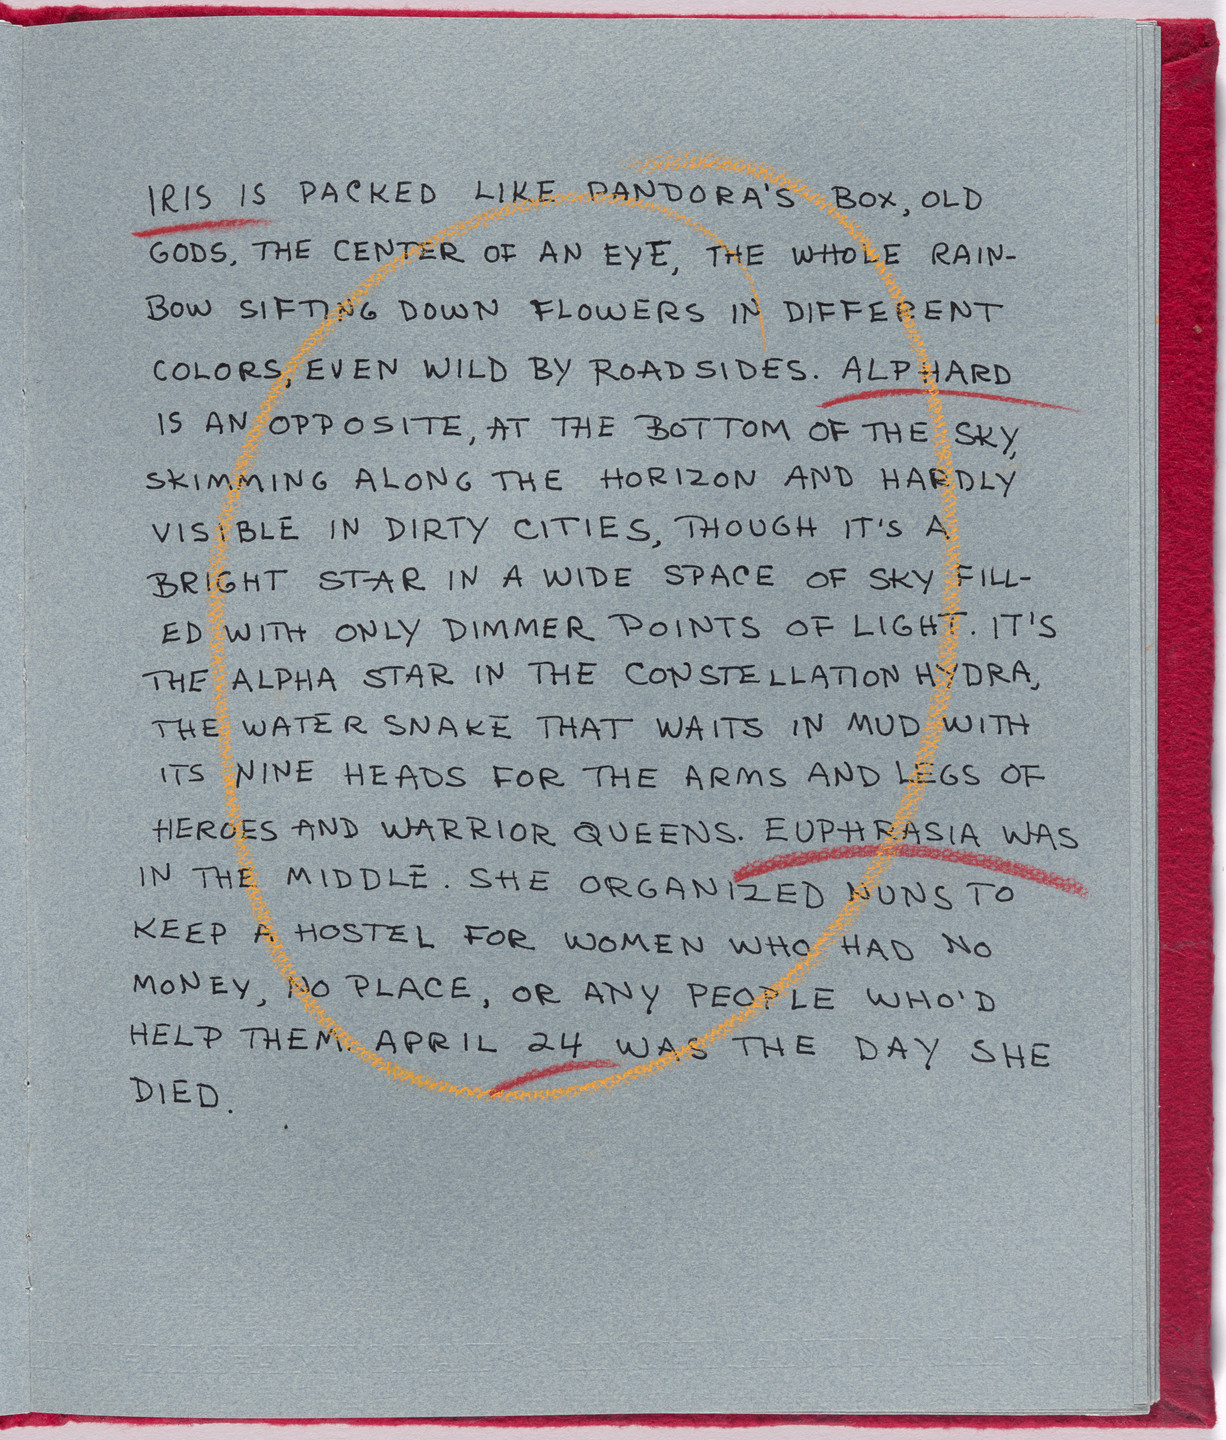 IRIS IS PACKED LIKE PANDORA'S BOX, OLD
GODS, THE CENTER OF AN EYE, THE WHOLE RAIN-
BOW SIFTING DOWN FLOWERS IN DIFFERENT
COLORS, EVEN WILD BY ROADSIDES. ALPHARD
IS AN OPPOSITE, AT THE BOTTOM OF THE SKY,
SKIMMING ALONG THE HORIZON AND HARDLY
VISIBLE IN DIRTY CITIES, THOUGH IT'S A
BRIGHT STAR IN A WIDE SPACE OF SKY FILL-
ED WITH ONLY DIMMER POINTS OF LIGHT. IT'S
THE ALPHA STAR IN THE CONSTELLATION HYDRA,
THE WATER SNAKE THAT WAITS IN MUD WITH
ITS NINE HEADS FOR THE ARMS AND LEGS OF
HEROES AND WARRIOR QUEENS. EUPHRASIA WAS
IN THE MIDDLE. SHE ORGANIZED NUNS TO
KEEP A HOSTEL FOR WOMEN WHO HAD NO
MONEY, NO PLACE, OR ANY PEOPLE WHO'D
HELP THEM. APRIL 24 WAS THE DAY SHE
DIED.